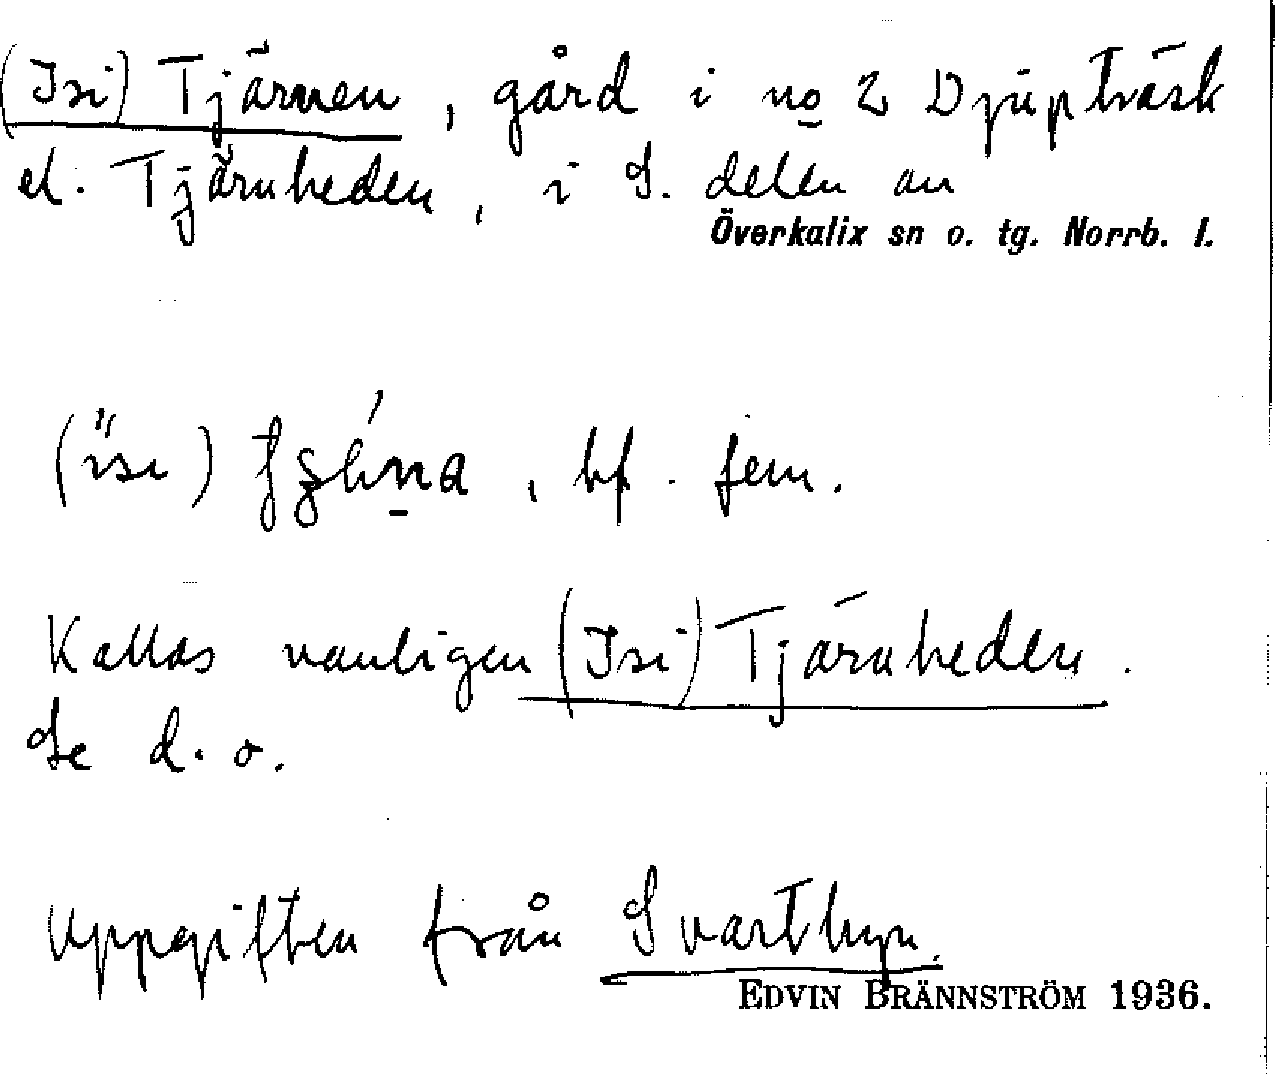 (Isi) Tjärnen, gård i no 2 Djupträsk
el. Tjärnheden, i S. delen av
Överkalix sn o. tg. Norrb. l.
bf. fem.
Kallas vanligen (Isi) Tjärnheden.
Se d. o.
Uppgiften från Svartbyn.
EDVIN BRÄNNSTRÖM 1936.